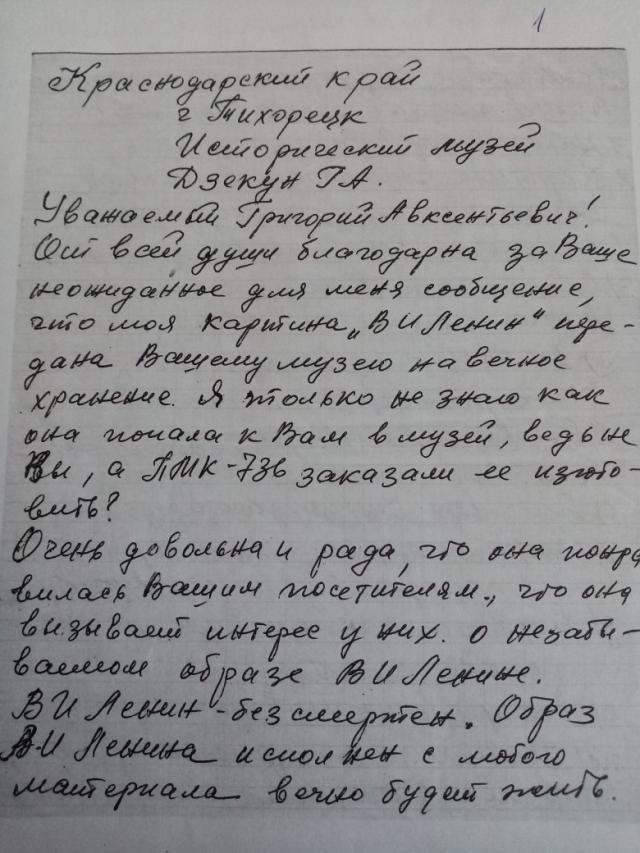 1
Краснодарский край
г Тихорецк
Исторический музей
Дзекун ГА.
Уважаемый Григорий Авксентьевич!
От всей души благодарна за Ваше
неожиданное для меня сообщение,
что моя картина „В И Ленин“ пере-
дана Вашему музею на вечное
хранение. Я только не знаю как
она попала к Вам в музей, ведь не
Вы, а ПМК-736 заказали ее изгото-
вить?
Очень довольна и рада, что она понра
вилась Вашим посетителям., что она
вызывает интерес у них. о незабы-
ваемом образе В И Ленине.
В И Ленин - бессмертен. Образ
В И Ленина исполнен с любого
материала вечно будет жить.